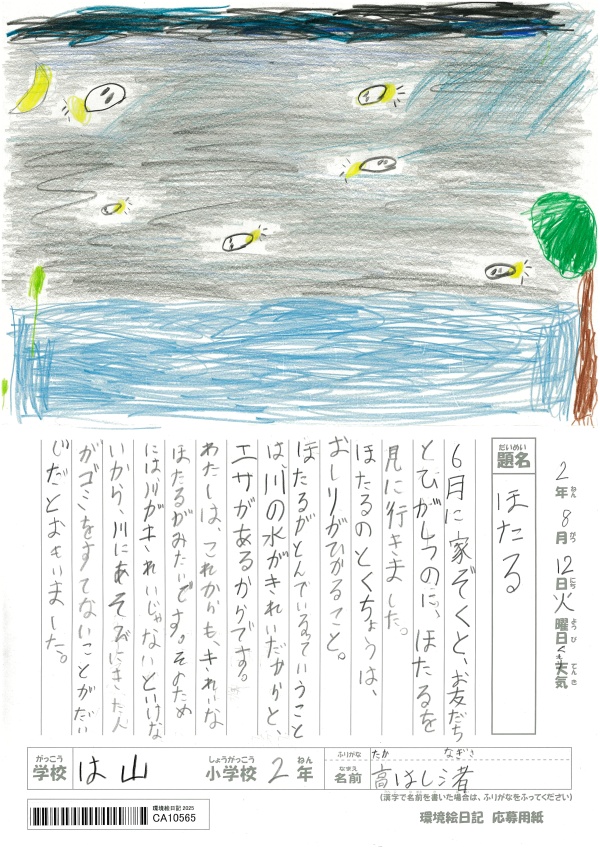 2年8月12日火曜日く天気
ねん がつ にち ようび てんき
だいめい
題名
ほたる
6月に家ぞくと、お友だち
とひがしつのに、ほたるを
見に行きました。
ほたるのとくちょうは、
おしりがひかること。
ほたるがとんでいるていうこと
は、川の水がきれいだからと、
エサがあるからです。
わたしは、これからも、きれいな
ほたるがみたいです。そのため
には、川がきれいじゃないといけな
いから、川にあそびにきた人
がゴミをすてないことがだい
じだとおもいました。
がっこう
学校
は山
しょうがっこう
小学校
2
ねん
年
ふりがな
たか なぎさ
なまえ
名前
高はし渚
(漢字で名前を書いた場合は、ふりがなをふってください)
環境絵日記 2025
CA10565
環境絵日記 応募用紙